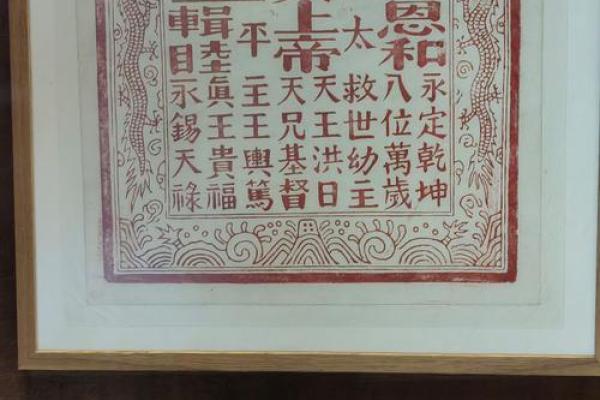 恩和
永定乾坤
八位萬歲
太
救世幼主
上帝
天王洪日
天兄基督
平
主王輿篤
輯睦
真王貴福
永錫天祿